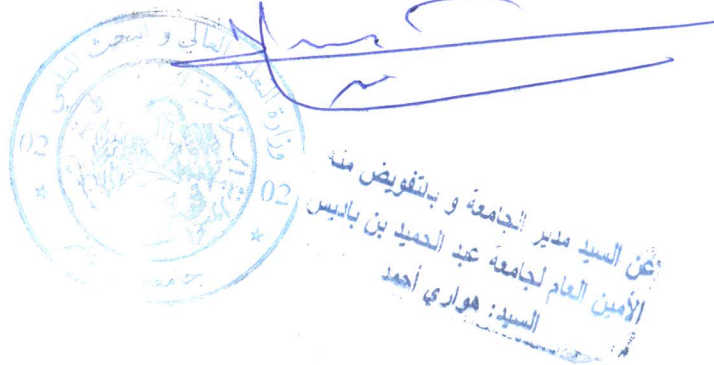 وزارة التعليم العالي و البحث العلمي
02
02
عن السيد مدير الجامعة و بالتفويض منه
الأمين العام لجامعة عبد الحميد بن باديس
السيد: هواري أحمد